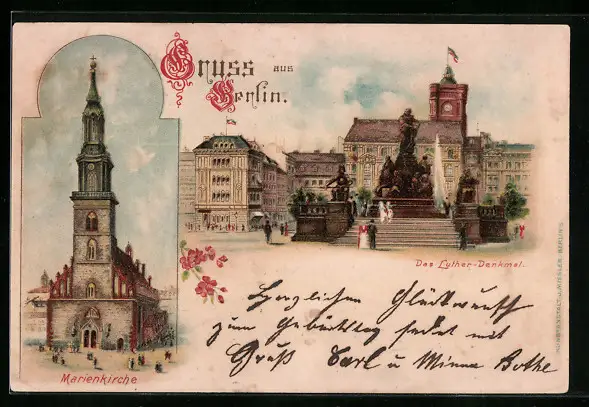 Gruss aus
Berlin.
Das Luther-Denkmal.
Herzlichen Glückwunsch
zum Geburtstag sendet mit
Gruß Carl u Minna Bothe
Marienkirche
KUNSTANSTALT J. MIESLER, BERLIN S.